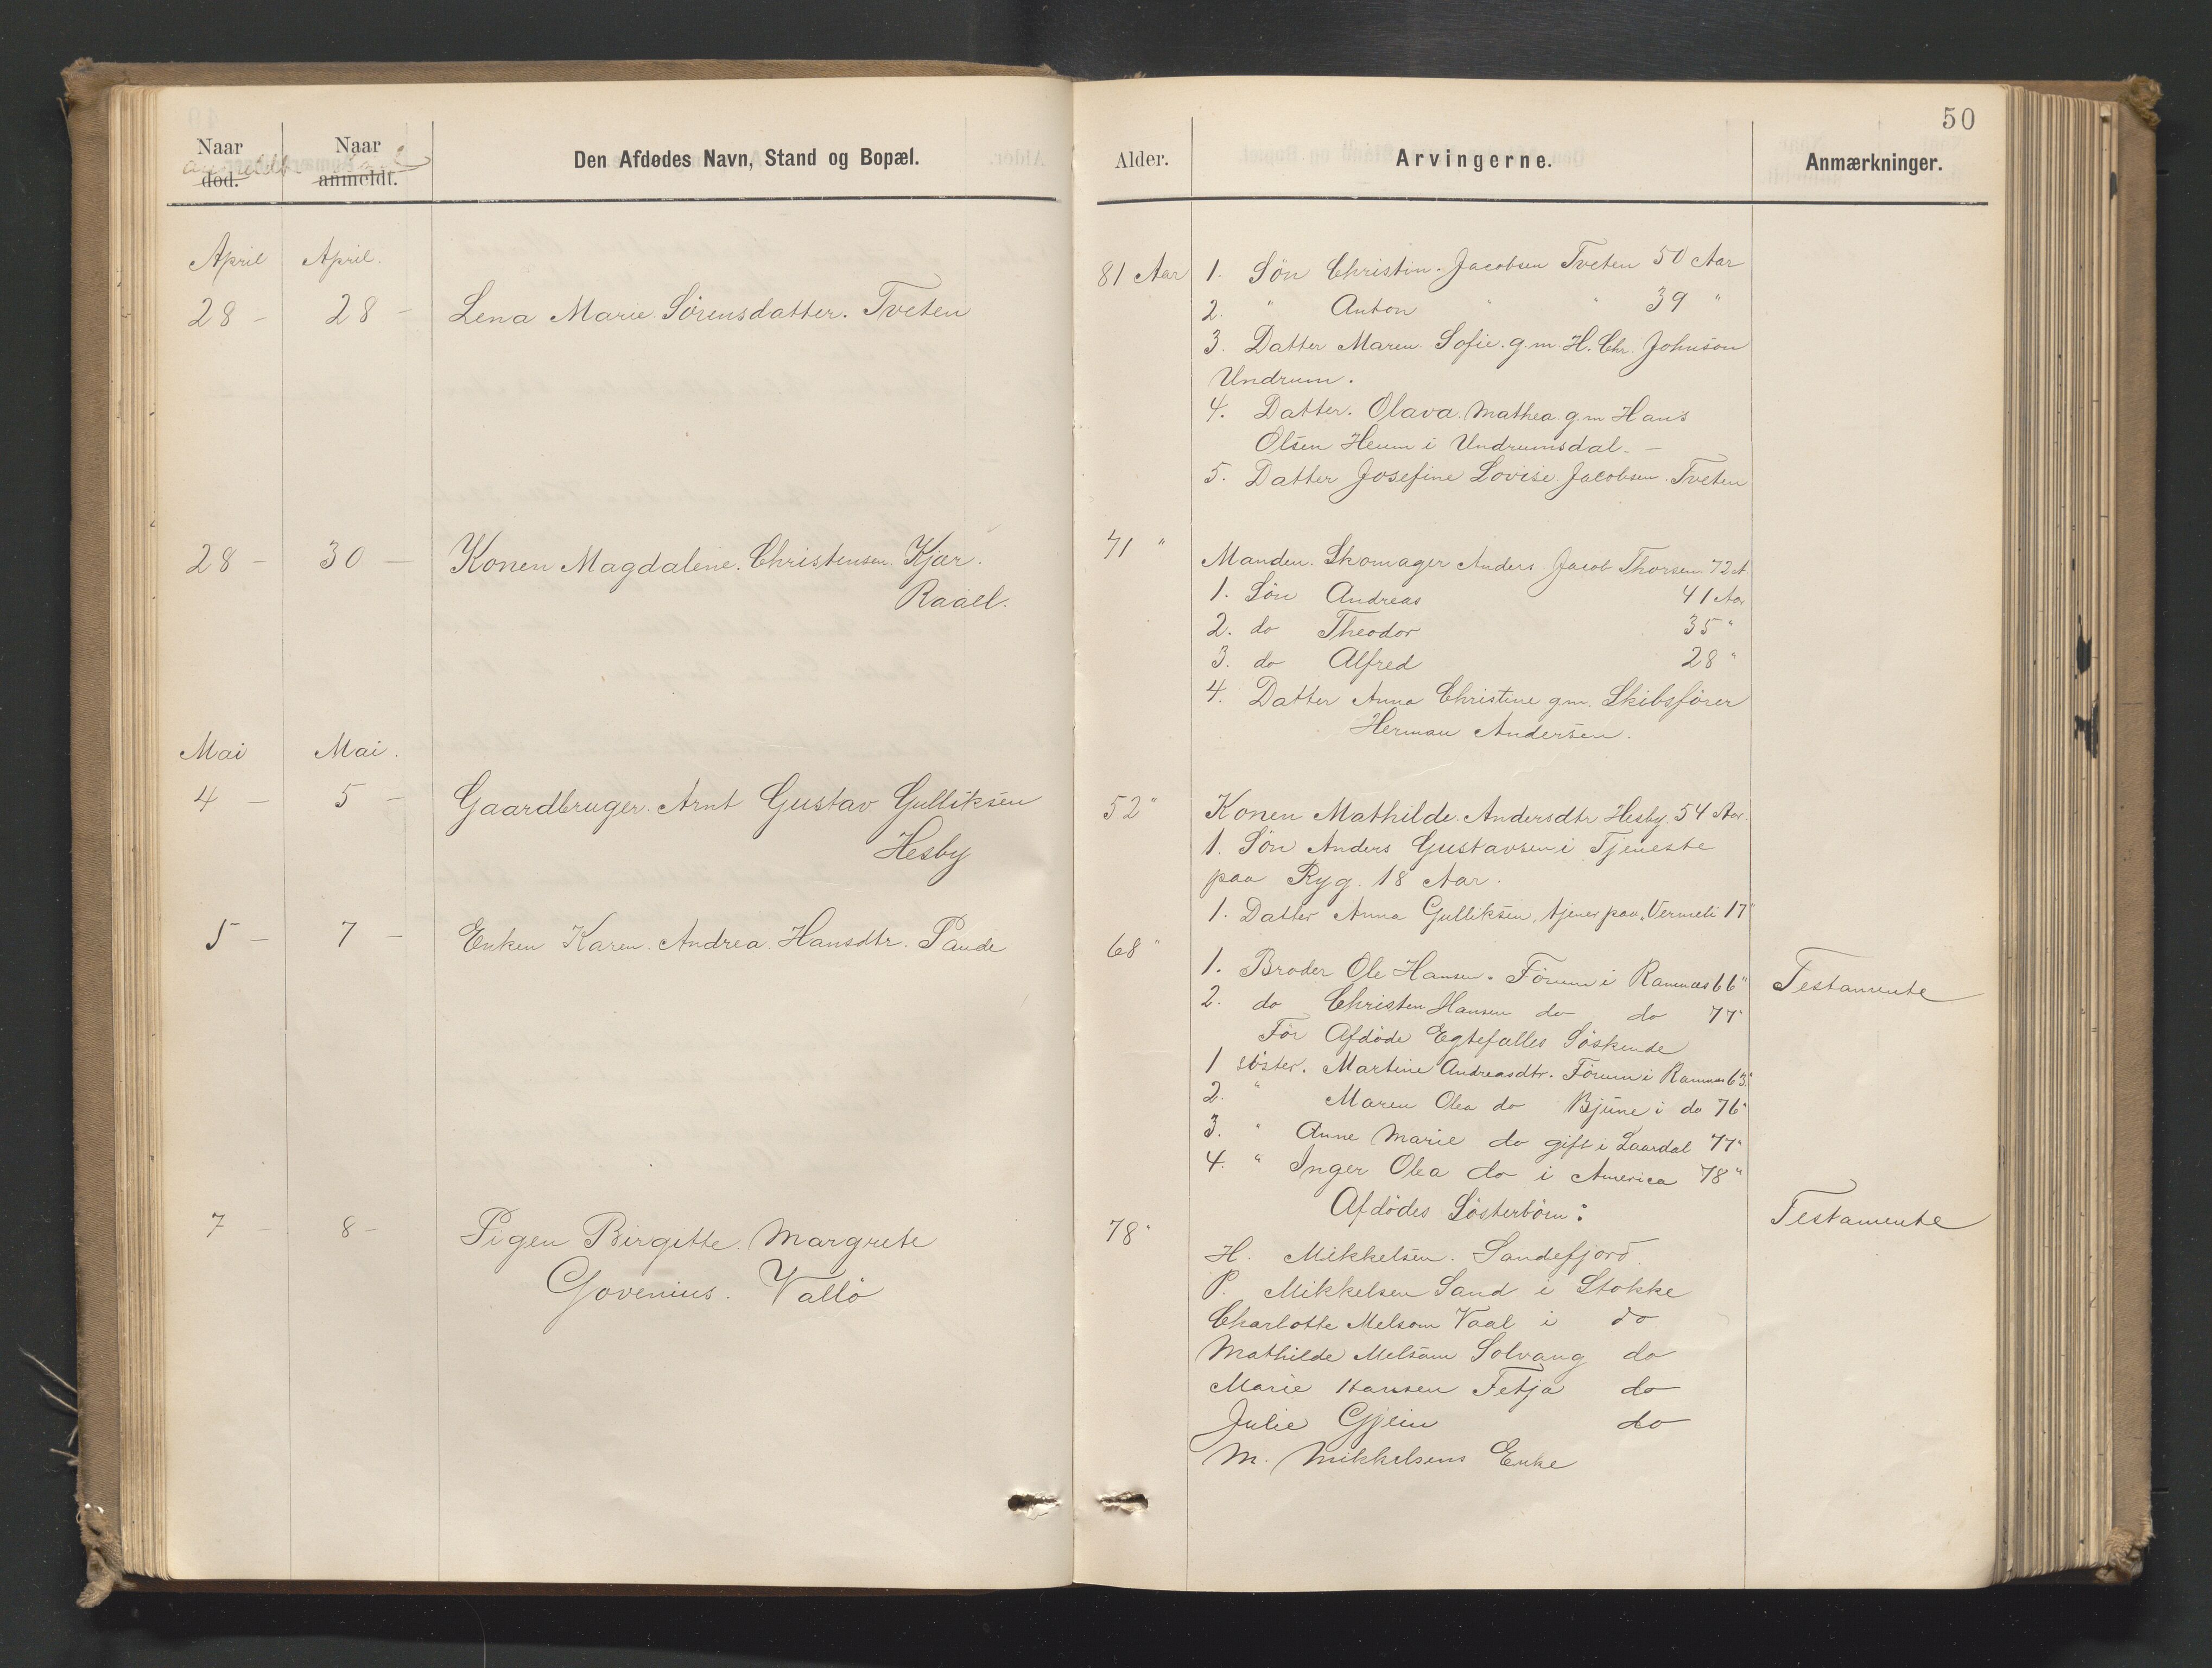 50
Naar død.
anmeldt
Naar anmeldt.
Den Afdødes Navn, Stand og Bopæl.
Alder.
Arvingerne.
Anmærkninger.
April April.
28 - 28 - Lena Marie Sørensdatter. Tveten
81 Aar
1. Søn Christin. Jacobsen Tveten 50 Aar
2. " Anton " " 39 "
3. Datter Maren Sofie. g.m. H. Chr. Johnson
Undrum.
4. Datter. Olava. Mathea g.m Hans
Olsen Heum i Undrumsdal. -
5. Datter Josefine Lovise Jacobsen. Tveten
28 - 30 - Konen Magdalene. Christensen Kjær.
Raaël.
71 "
Manden. Skomager Anders Jacob Thorsen 72 A.
1. Søn Andreas 41 Aar
2. do Theodor 35 "
3. do Alfred 28 "
4. Datter Anna Christine gm. Skibsfører
Herman Andersen.
Mai Mai.
4 - 5 - Gaardbruger. Arnt Gustav Gulliksen
Hesby
52 "
Konen Mathilde. Andersdtr. Hesby. 54 Aar.
1. Søn Anders Gustavsen i Tjeneste
paa Ryg. 18 Aar.
1. Datter Anna Gulliksen, tjener paa Vermeli 17 "
5 - 7 - Enken Karen. Andrea. Hansdtr. Paude
68 "
1. Broder Ole Hansen. Förum i Ramnæs 66 "
Testamente
2. do Christen Hansen do do 77 "
Før Afdøde Egtefælles Søskende
1 søster. Martine Andreasdtr. Förum i Ramnæs 63 "
2. " Maren Olea do Bjune i do 76 "
3. " Anne Marie do gift i Laardal 77 "
4. " Inger Olea do i America 78 "
7 - 8 - Pigen Birgitte. Margrete
Govenius. Vallø
78 "
Afdødes Søsterbörn:
Testamente
H. Mikkelsen. Sandefjord.
P. Mikkelsen Sand i Stokke
Charlotte Melsom Vaal i do
Mathilde Melsom Solvang do
Marie Hansen Fetja do
Julie Gjein do
M. Mikkelsens Enke